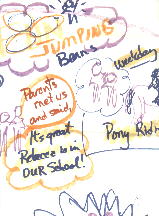 JUMPING
Beans
weekday
Parents
met us
and said,
It's great
Rebecca is in
OUR School!
Pony Rid